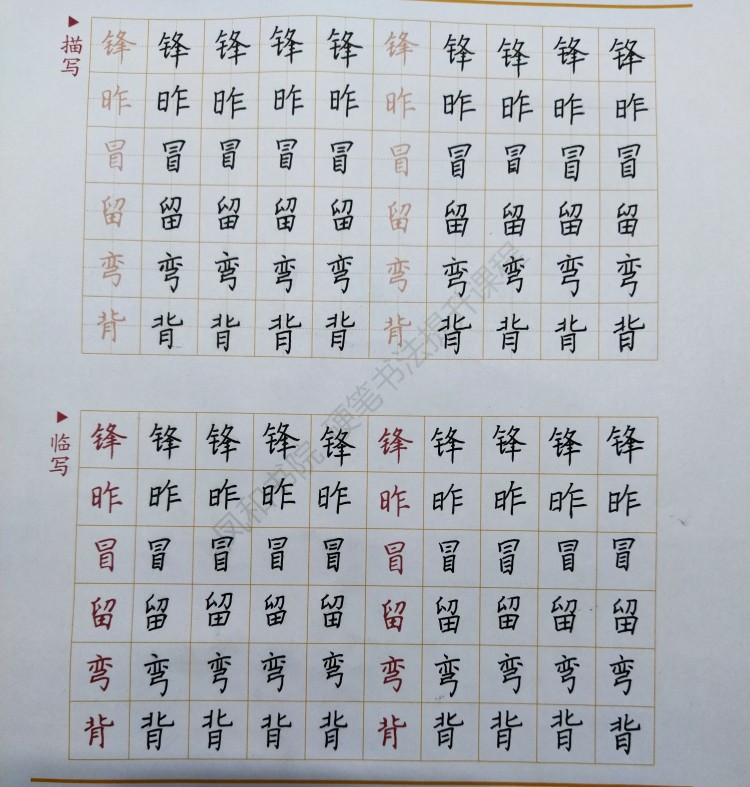 描写
锋锋锋锋锋锋锋锋锋锋
昨昨昨昨昨昨昨昨昨昨
冒冒冒冒冒冒冒冒冒冒
留留留留留留留留留留
弯弯弯弯弯弯弯弯弯弯
背背背背背背背背背背
临写
锋锋锋锋锋锋锋锋锋锋
昨昨昨昨昨昨昨昨昨昨
冒冒冒冒冒冒冒冒冒冒
留留留留留留留留留留
弯弯弯弯弯弯弯弯弯弯
背背背背背背背背背背
风和书院 硬笔书法提升课程